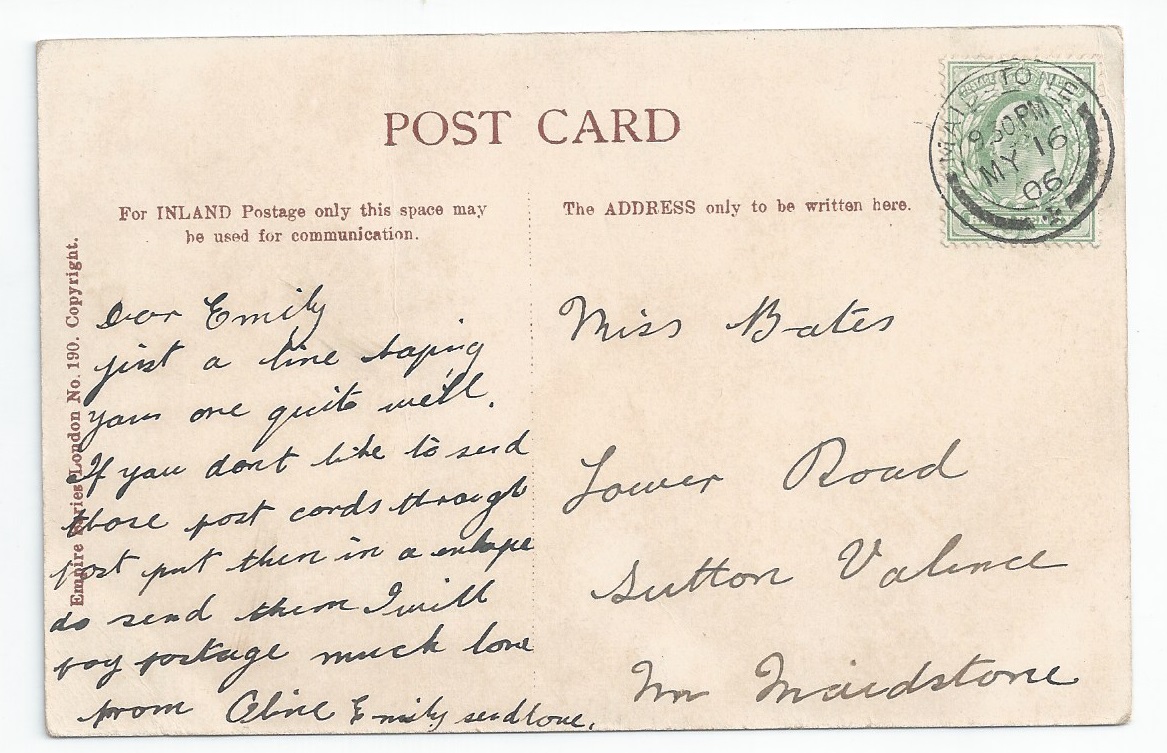 POST CARD
MAIDSTONE
9 30 PM
MY 16
06
For INLAND Postage only this space may
be used for communication.
The ADDRESS only to be written here.
Empire Series London No. 190. Copyright.
Dear Emily
just a line hoping
you are quite well.
If you dont like to send
those post cards through
post put them in a
do send them I will
pay postage much love
from Emily send love.
Miss Bates
Lower Road
Sutton Valence
Nr Maidstone